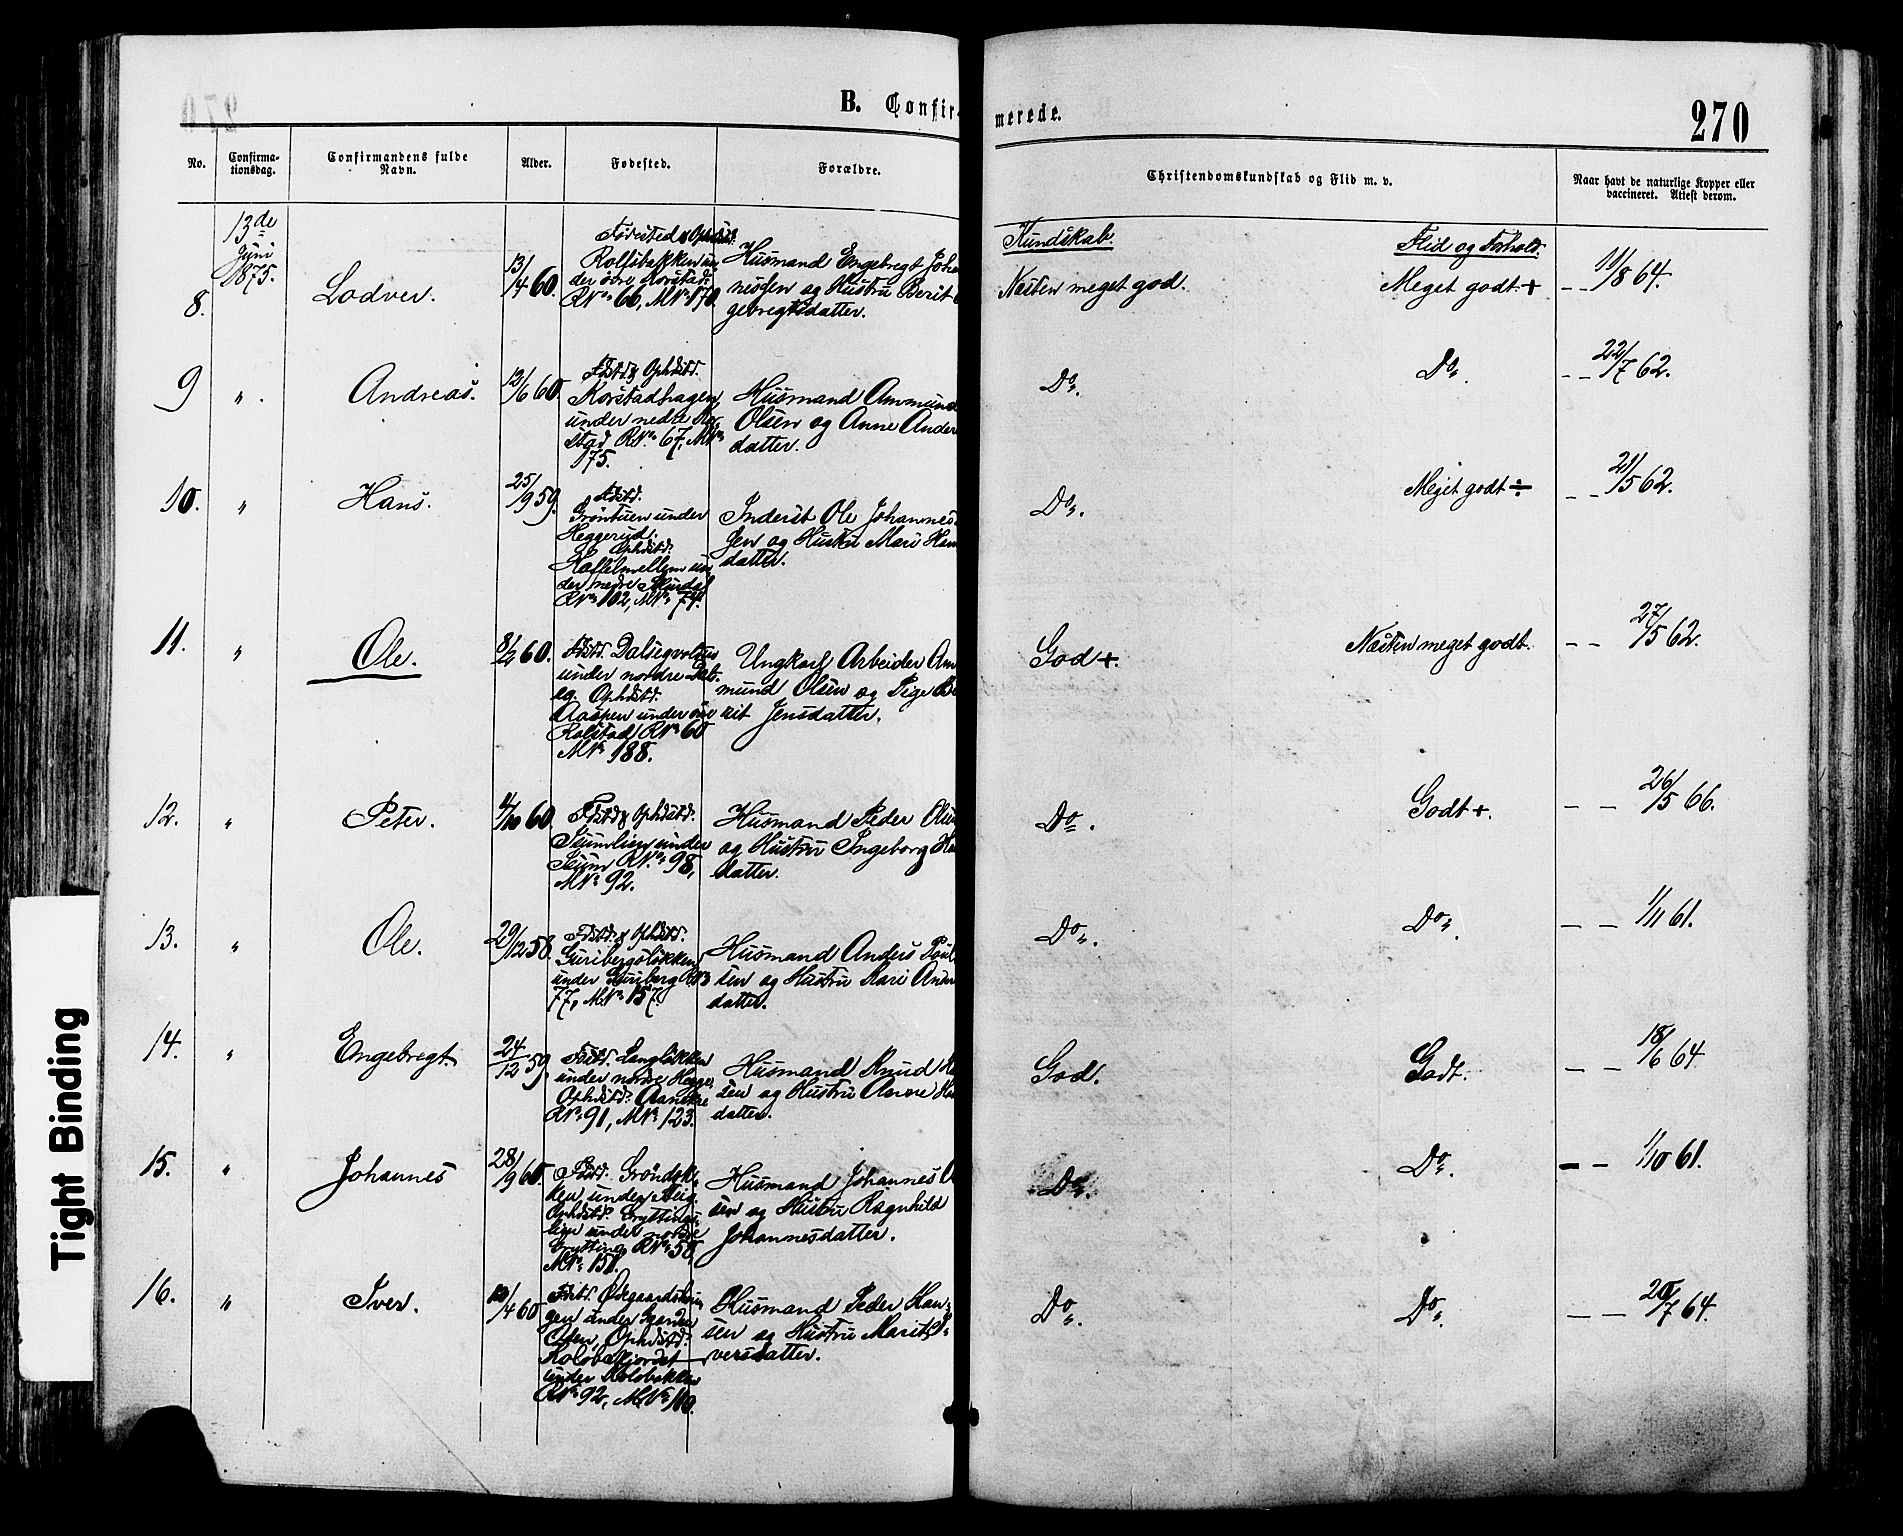 B. Confir-
merede.
270
No.
Confirma-
tionsdag.
Confirmandens fulde
Navn.
Alder.
Fødested.
Forældre.
Christendomskundskab og Flid m. v.
Naar havt de naturlige Kopper eller
vaccineret. Attest derom.
13de
Juni
1875.
8.
Lodver.
13/4 60.
Rolfsbakken un-
der övre Korstad.
RNr. 66, MNr. 170
Husmand Engebregt Joha
nesen og Hustru Berit
gebregtsdatter.
Kundskab.
Næsten meget god.
Flid og Forhold.
Meget godt +
- - 11/8 64.
9
" .
Andreas.
12/6 60.
Fdstd. & Ophdstd.
Korstadhagen
under nedre Kor-
stad RNr. 67, MNr.
175.
Husmand Ammund
Olsen og Anne Ander
datter.
Do.
Do.
- - 22/7 62.
10.
"
Hans.
25/9 59.
Fdstd.
Gröntuen under
Heggerud.
Ophdstd.
under nedre
RNr. 102, MNr. 74.
Inderst Ole Johannes-
sen og Hustru Mari Han
datter.
Do.
Meget godt ÷
- - 21/5 62.
11.
"
Ole.
8/2 60.
Fdstd.
under nordre Dals-
eg. Ophdstd.
Aaspen under övre
Rolstad RNr. 60
MNr. 188.
Ungkarl Arbeider Am
mund Olsen og Pige Be
rit Jensdatter.
God +.
Næsten meget godt.
- - 27/5 62.
12.
"
Peter.
4/10 60.
Fdstd. & Ophdstd.
under
RNr. 98,
MNr. 92.
Husmand Peder Olu
og Hustru Ingeborg Ha
datter.
Do.
Godt +.
- - 26/5 66.
13.
"
Ole.
29/12 58.
Fdstd. & Ophdstd.
Guribergslökken
under Guriberg RNr
77, MNr. 157.
Husmand Anders Poul
sen og Hustru Kari Amm
datter.
Do.
Do.
- - 1/11 61.
14.
"
Engebregt.
24/12 59
Fdstd. Langlökken
under nordre Hegge,
Ophdstd.
RNr. 91, MNr. 123.
Husmand Knud Ha
sen og Hustru Anne Ha
datter.
God.
Godt.
- - 18/6 64.
15.
"
Johannes
28/9 60.
Fdstd. Gröndok-
ken under Steig.
Ophdstd. Gryttings-
lien under nordre
Grytting RNr. 58,
MNr. 151.
Husmand Johannes O
sen og Hustru Ragnhild
Johannesdatter.
Do.
Do.
- - 1/10 61.
16.
"
Iver.
10/4 60
Fdstd. Ödegaardshau-
gen under
Oden, Ophdstd.
Kolobakjordet
under Kolobakken
RNr. 92, MNr. 110.
Husmand Peder Han-
sen og Hustru Marit I-
versdatter.
Do.
Do.
- - 20/7 64.
Tight Binding